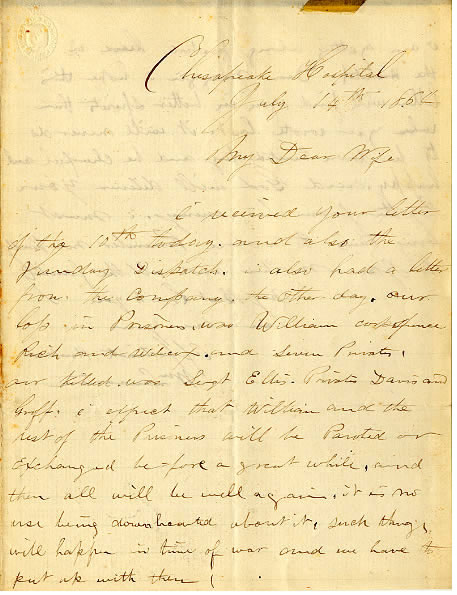 Chesapeake Hospital
July 14th 186
My Dear Wife
i received your letter
of the 10th today. and also the
Sunday Dispatch. i also had a letter
from the Company. the other day. our
loss in Prisoners. was William
Rich and Wilcox. and Seven Privats.
our Killed was Sergt Ellis. Privats Davis and
Goff. i expect that William and the
rest of the Prisoners will be Paroled or
Exchanged be-fore a great while, and
then all will be well again. it is no
use being downhearted about it, such things
will happen in time of war and we have to
put up with them